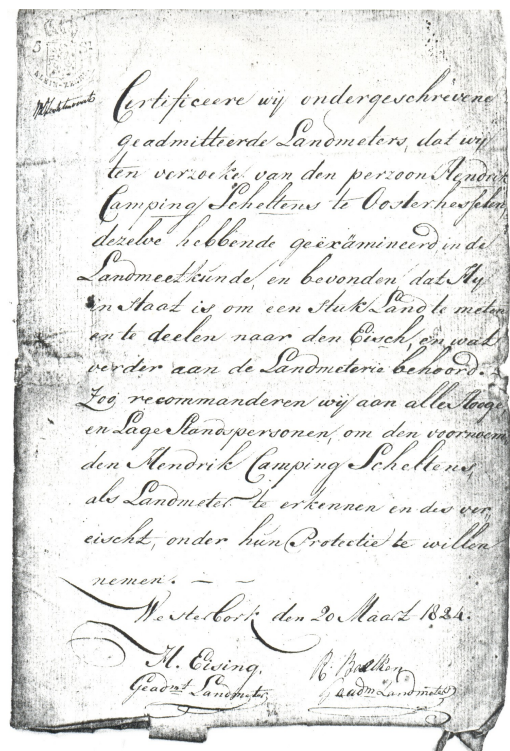 5
Certificeere wij ondergeschrevene
geadmitteerde Landmeters, dat wij
ten verzoeke van den perzoon Hendrik
Camping Scheltens te Oosterhesselen,
dezelve hebbende geëxamineerd in de
Landmeetkunde, en bevonden dat Hij
in staat is om een stuk Land te meten
en te deelen naar den Eisch, en wat
verder aan de Landmeterie behoord.
Zoo recommanderen wij aan alle Hooge
en Lage Standspersonen, om den voornoem
den Hendrik Camping Scheltens,
als Landmeter te erkennen en des ver"
eischt, onder hun Protectie te willen
nemen. — —
Westerbork den 20 Maart 1824.
H. Eising, R.
Geadmt. Landmeter Geadm Landmeter